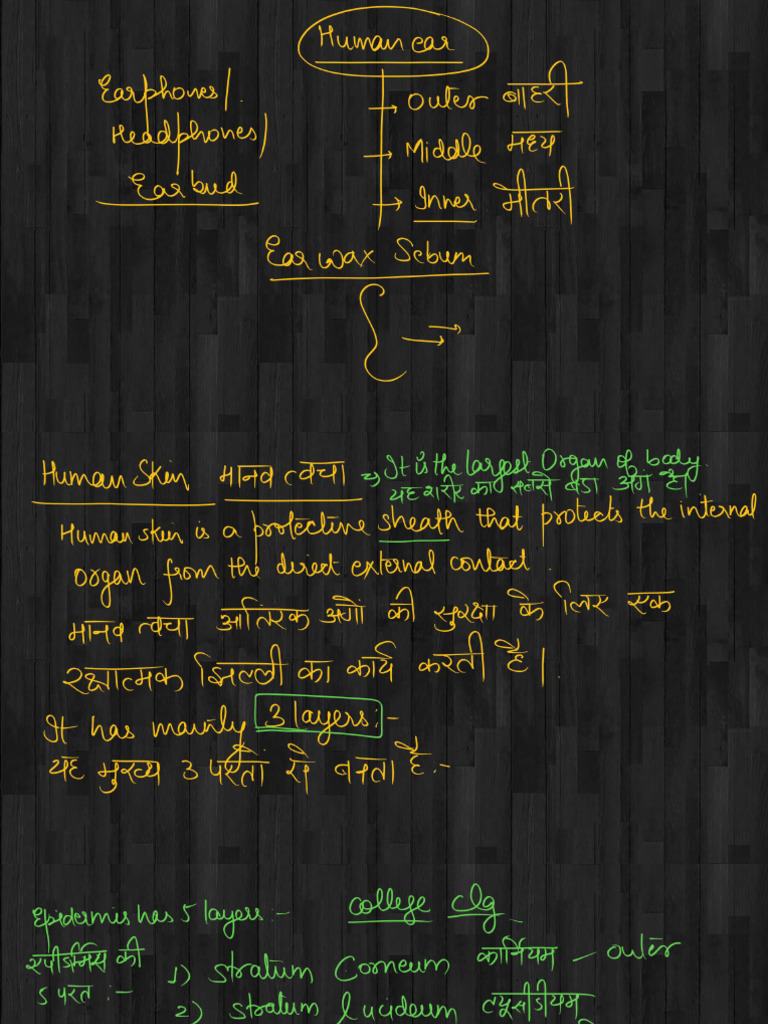 Human ear
Earphones/
Headphones/
Earbud
→ Outer बाहरी
→ Middle मध्य
→ Inner भीतरी
Ear wax Sebum
Human Skin मानव त्वचा
It is the largest Organ of body.
यह शरीर का सबसे बडा अंग है।
Human skin is a protective sheath that protects the internal
organ from the direct external contact.
मानव त्वचा आतिंरक अगों की सुरक्षा के लिए एक
रक्षात्मक झिल्ली का कार्य करती है।
It has mainly 3 layers:-
यह मुख्य 3 परतों से बनता है:-
Epidermis has 5 layers:-
college clg
एपीडर्मिस की
5 परत :-
1) Stratum Corneum कार्नियम - outer
2) Stratum lucideum ल्यूसीडीयम